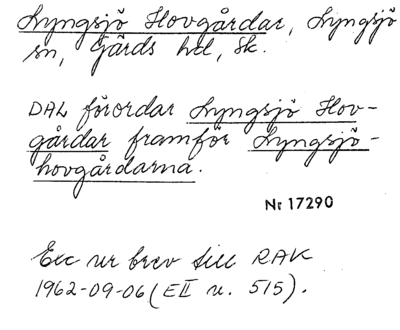 Lyngsjö Hovgårdar, Lyngsjö
sn, Gärds hd, Sk.
DAL förordar Lyngsjö Hov-
gårdar framför Lyngsjö-
hovgårdarna.
Nr 17290
Exc ur brev till RAK
1962-09-06 (EII u. 515).